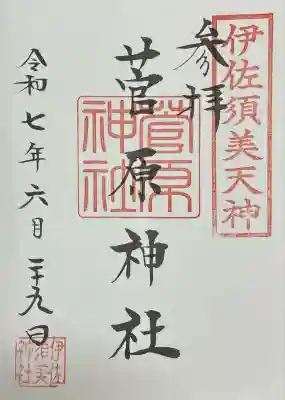 伊佐須美天神
参拝
菅原神社
菅原神社
令和七年六月二十九日
伊佐須美神社